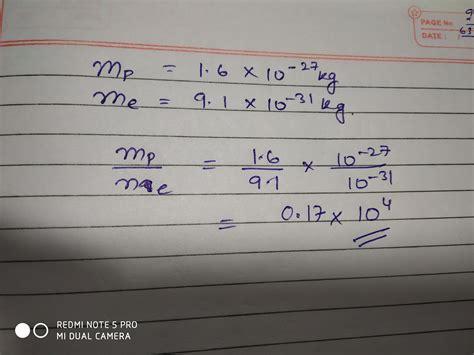 PAGE No
DATE :
mp = 1.6 × 10⁻²⁷ kg
me = 9.1 × 10⁻³¹ kg.
mp/me = 1.6/9.1 × 10⁻²⁷/10⁻³¹
= 0.17 × 10⁴
REDMI NOTE 5 PRO
MI DUAL CAMERA